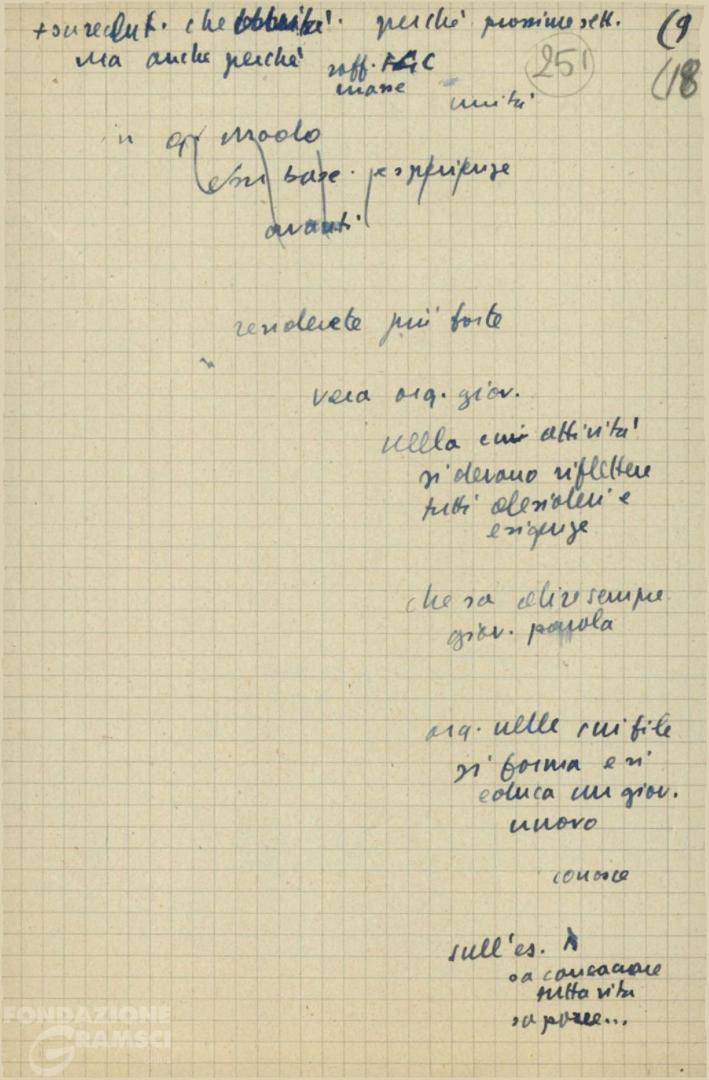 che perché prossime sett. (9
ma anche perché raff. FGC (18
masse 251
unità
in qs modo
su base esperienze
avanti
renderete più forte
vera org. giov.
nella cui attività
si devano riflettere
tutti desideri e
esigenze
che sa dire sempre
giov. parola
org. nelle cui file
si forma e si
educa un giov.
nuovo
conosce
sull'es.
sa consacrare
tutta vita
sa porre...
FONDAZIONE
GRAMSCI